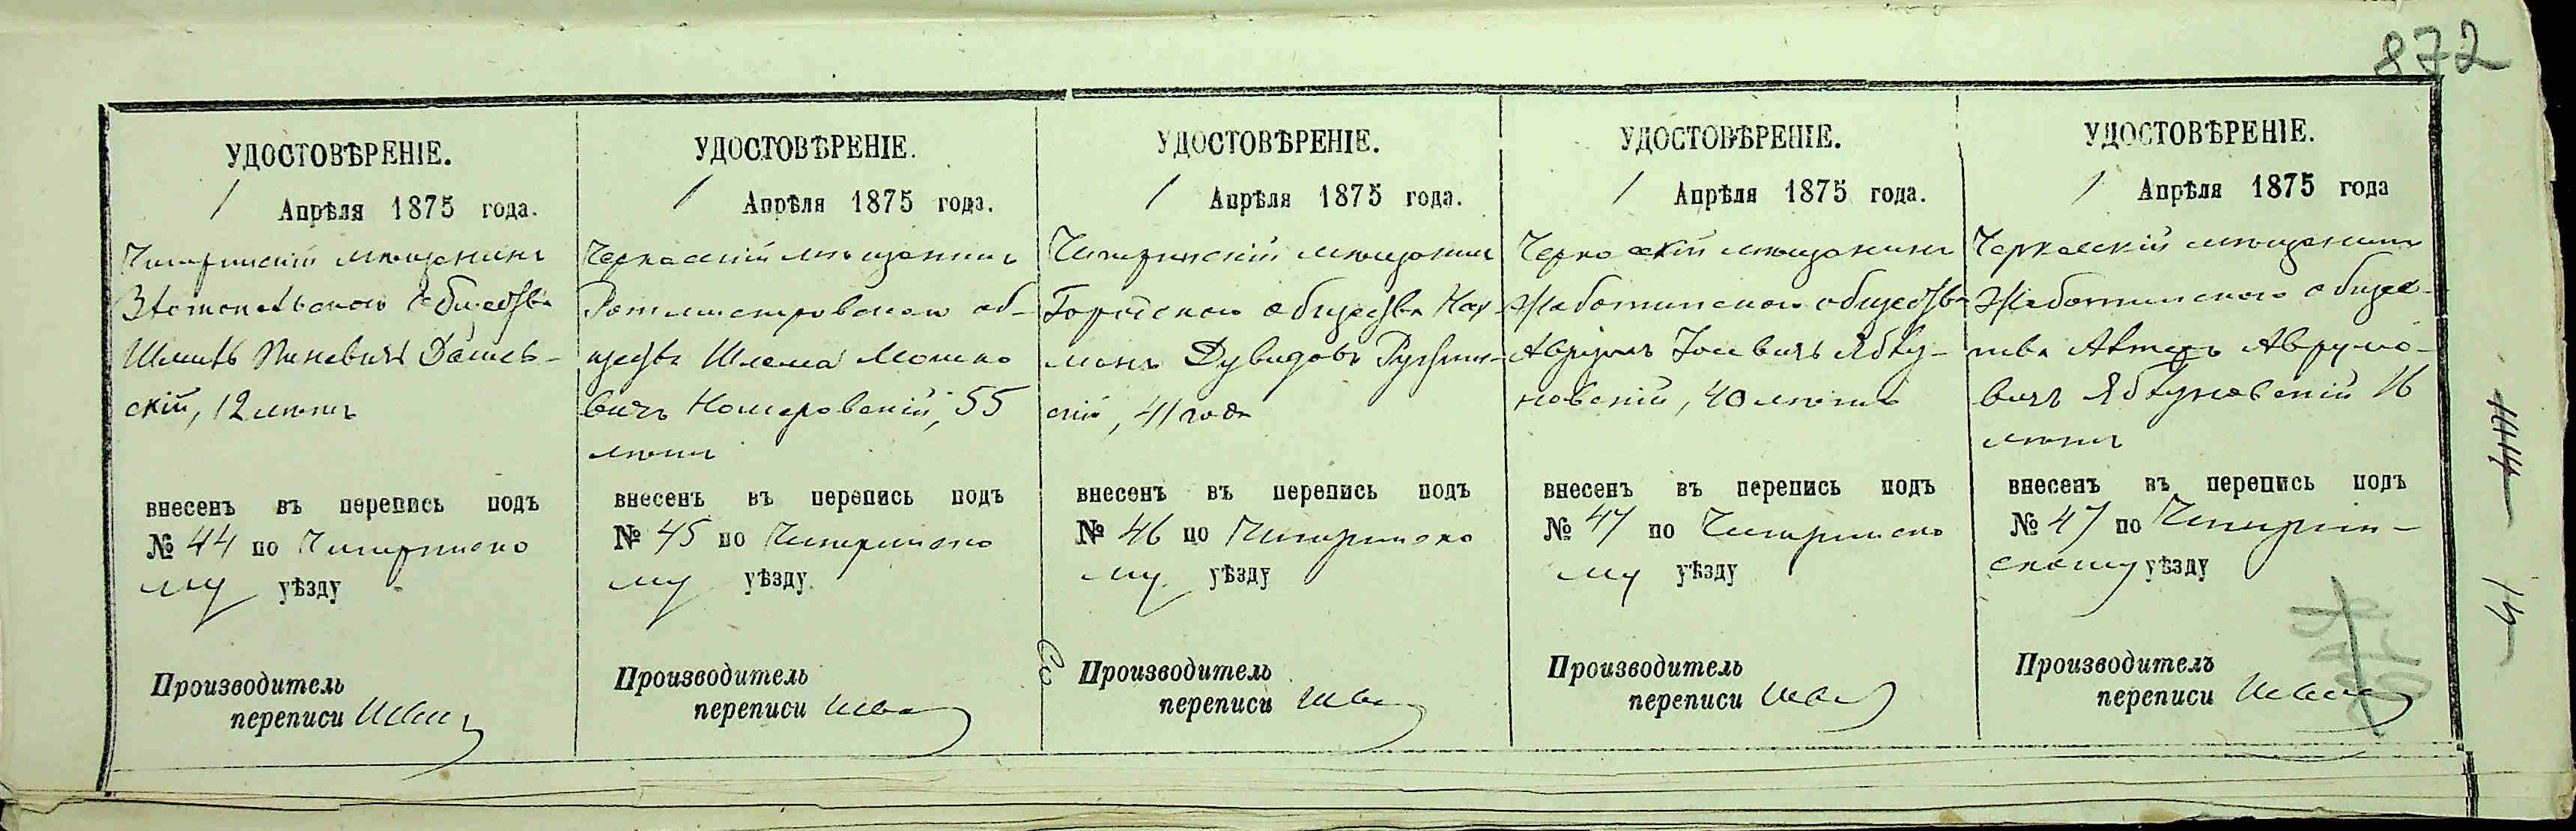 872
УДОСТОВѢРЕНІЕ.
1 Апрѣля 1875 года.
Чигиринскій мѣщанинъ
Златопольскаго общества
Шмиль Пиневичъ Дашев-
скій, 12 лѣтъ
внесенъ въ перепись подъ
№ 44 по Чигиринско
му уѣзду
Производитель
переписи
УДОСТОВѢРЕНІЕ.
1 Апрѣля 1875 года.
Черкаскій мѣщанинъ
Ротмистровскаго об-
щества Шлема Мошко
вичъ Комаровскій, 55
лѣтъ
внесенъ въ перепись подъ
№ 45 по Чигиринско
му уѣзду
Производитель
переписи
УДОСТОВѢРЕНІЕ.
1 Апрѣля 1875 года.
Чигиринскій мѣщанин
Городскаго общества Нах-
манъ Дувидовъ
скій, 41 года
внесенъ въ перепись подъ
№ 46 по Чигиринско
му уѣзду
Производитель
переписи
УДОСТОВѢРЕНІЕ.
1 Апрѣля 1875 года.
Черкаскій мѣщанинъ
Жаботинскаго общества
Аврумъ Іосевичъ Яблу-
новскій, 40 лѣтъ
внесенъ въ перепись подъ
№ 47 по Чигиринско
му уѣзду
Производитель
переписи
УДОСТОВѢРЕНІЕ.
1 Апрѣля 1875 года
Черкаскій мѣщанинъ
Жаботинскаго общес-
тва Аврумо-
вичъ Яблуновскій 16
лѣтъ
внесенъ въ перепись подъ
№ 47 по Чигирин-
скому уѣзду
Производитель
переписи